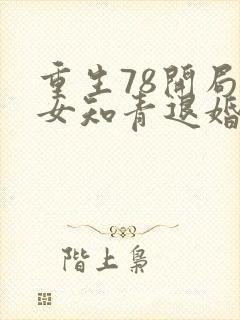 重生78開局
女知青退婚
階上梟